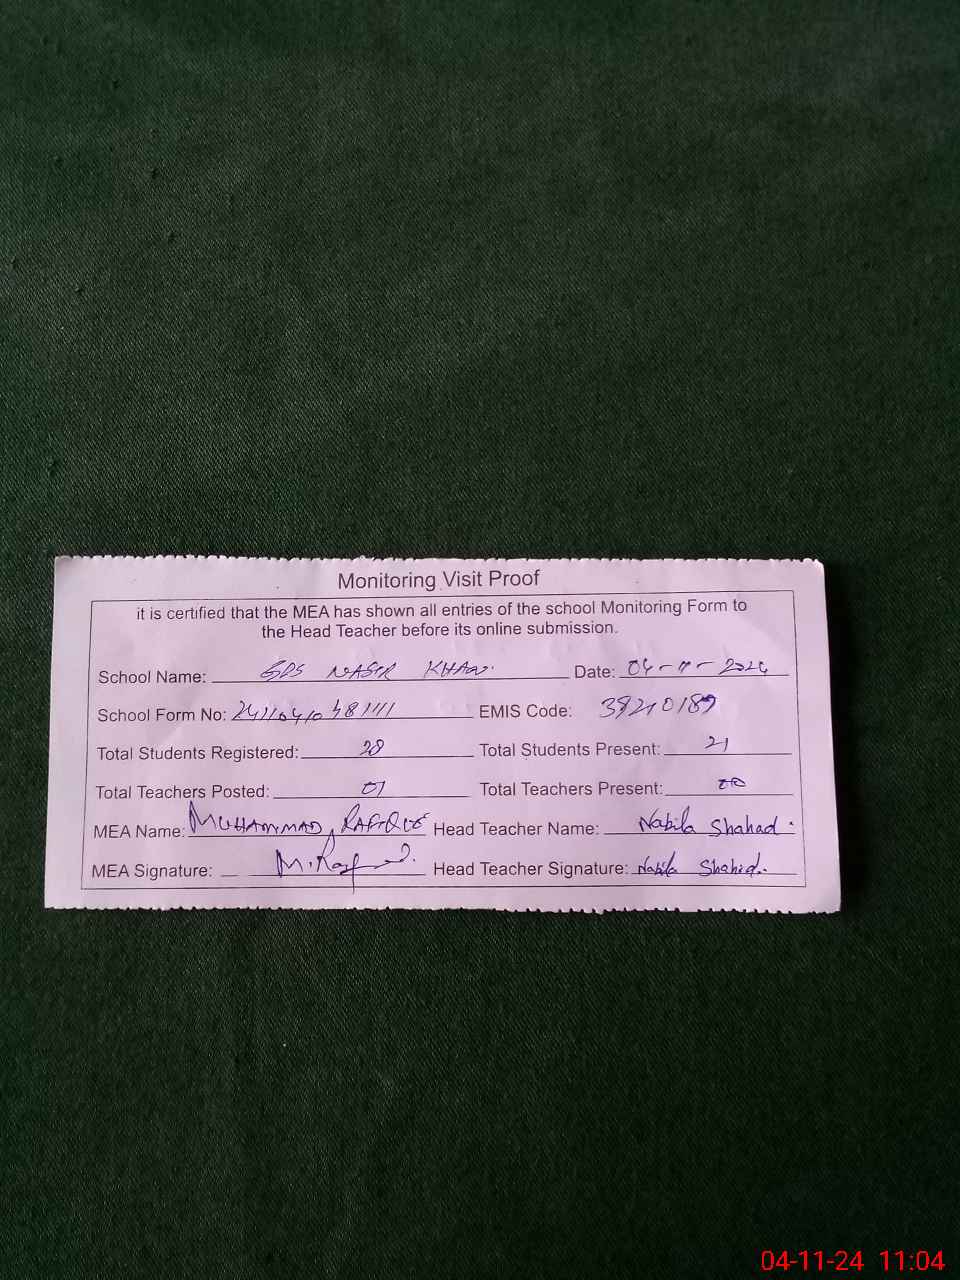 Monitoring Visit Proof
it is certified that the MEA has shown all entries of the school Monitoring Form to
the Head Teacher before its online submission.
School Name: GPS NASIR KHAN. Date: 04-11-2024
School Form No: EMIS Code:
Total Students Registered: 28 Total Students Present: 21
Total Teachers Posted: 01 Total Teachers Present:
MEA Name: MUHAMMAD RAFIQUE Head Teacher Name: Nabila Shahad.
MEA Signature: Head Teacher Signature: Nabila Shahid.
04-11-24 11:04